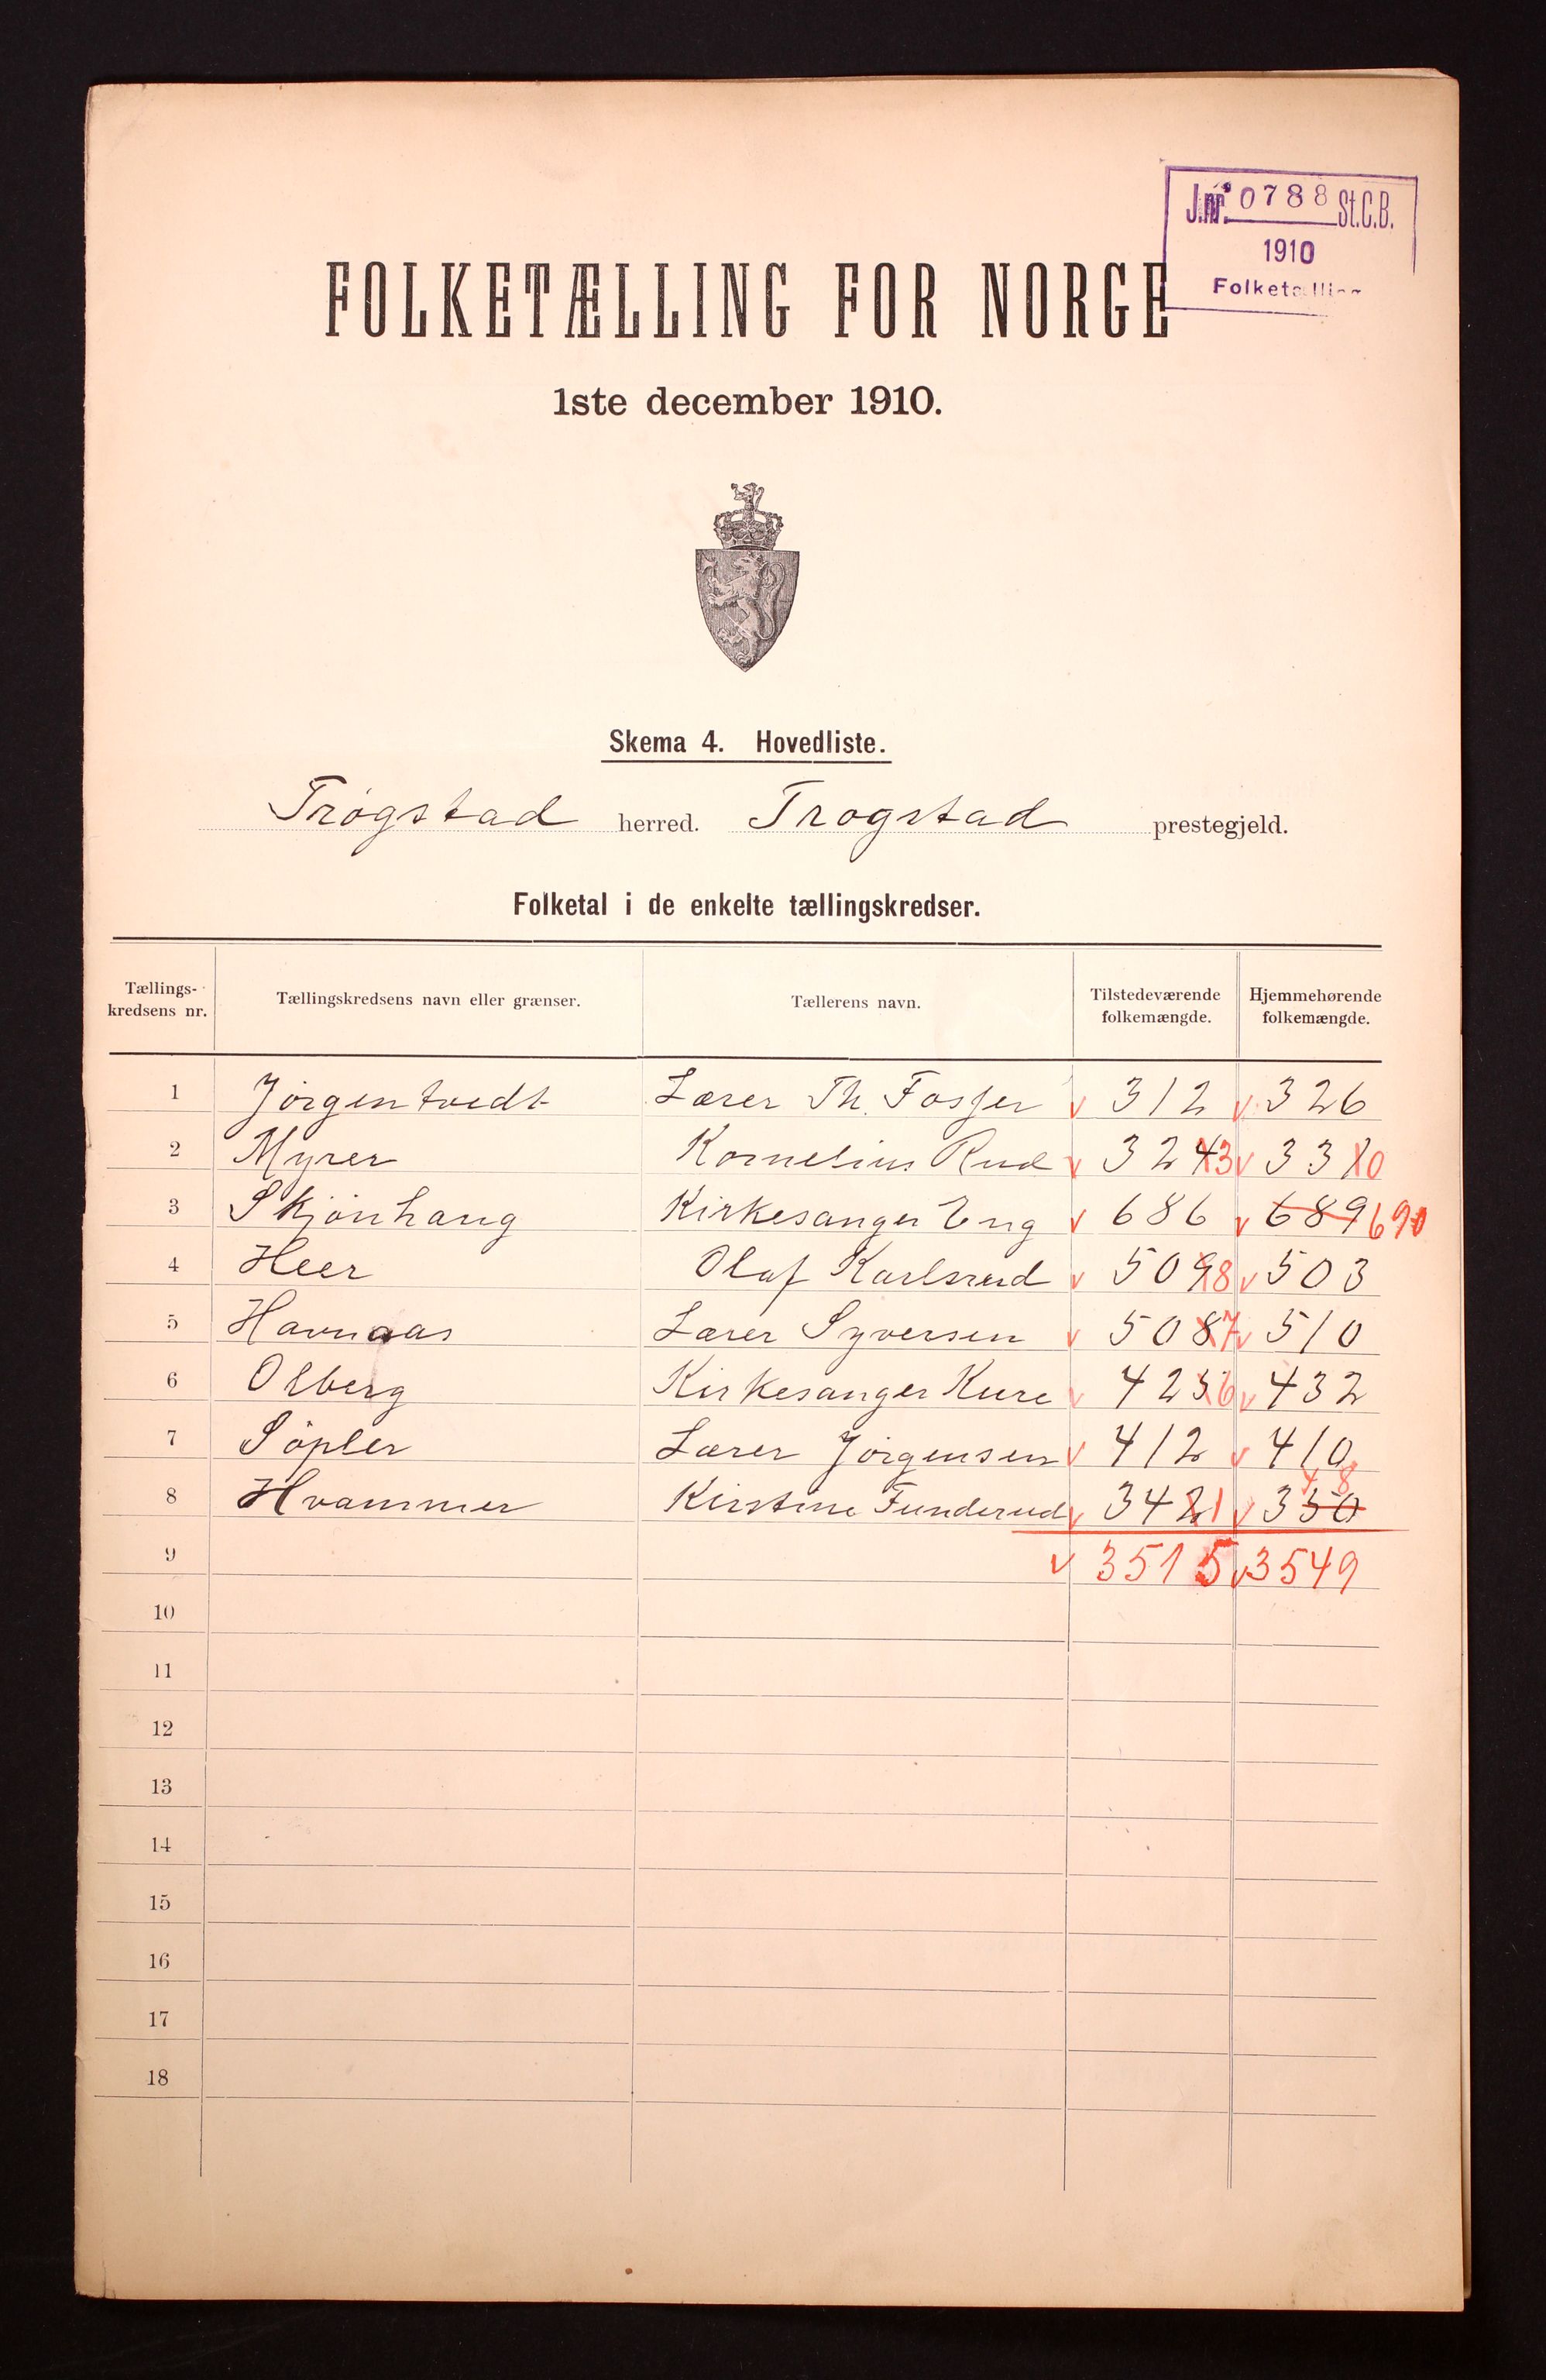 J.nr. 0788 St.C.B.
1910
Folketælling
FOLKETÆLLING FOR NORGE
1ste december 1910.
Skema 4. Hovedliste.
Trøgstad herred. Trogstad prestegjeld.
Folketal i de enkelte tællingskredser.
Tællings-kredsens nr. Tællingskredsens navn eller grænser. Tællerens navn. Tilstedeværende folkemængde. Hjemmehørende folkemængde.
1 Jörgentvedt Lærer Th. Fosser v 312 v 326
2 Myrer Kornelius Rud v 324 3 v 331 0
3 Skjönhaug Kirkesanger Eng v 686 v 689 690
4 Heer Olaf Karlsrud v 509 8 v 503
5 Havnaas Lærer Syversen v 508 7 v 510
6 Olberg Kirkesanger Kure v 425 6 v 432
7 Söpler Lærer Jörgensen v 412 v 410
8 Hvammer Kirstine Funderud v 342 1 v 350 48
9 v 3515 v 3549
10
11
12
13
14
15
16
17
18